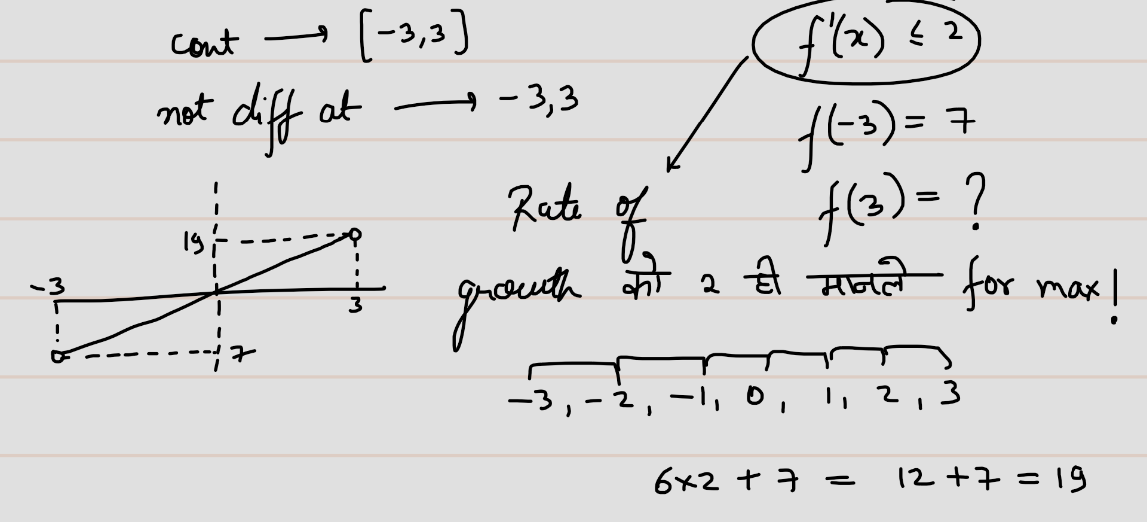 cont → [-3,3]
not diff at → -3,3
f'(x) ≤ 2
f(-3) = 7
f(3) = ?
Rate of
growth को 2 ही मानले for max!
19
-3
3
7
-3, -2, -1, 0, 1, 2, 3
6x2 + 7 = 12 + 7 = 19